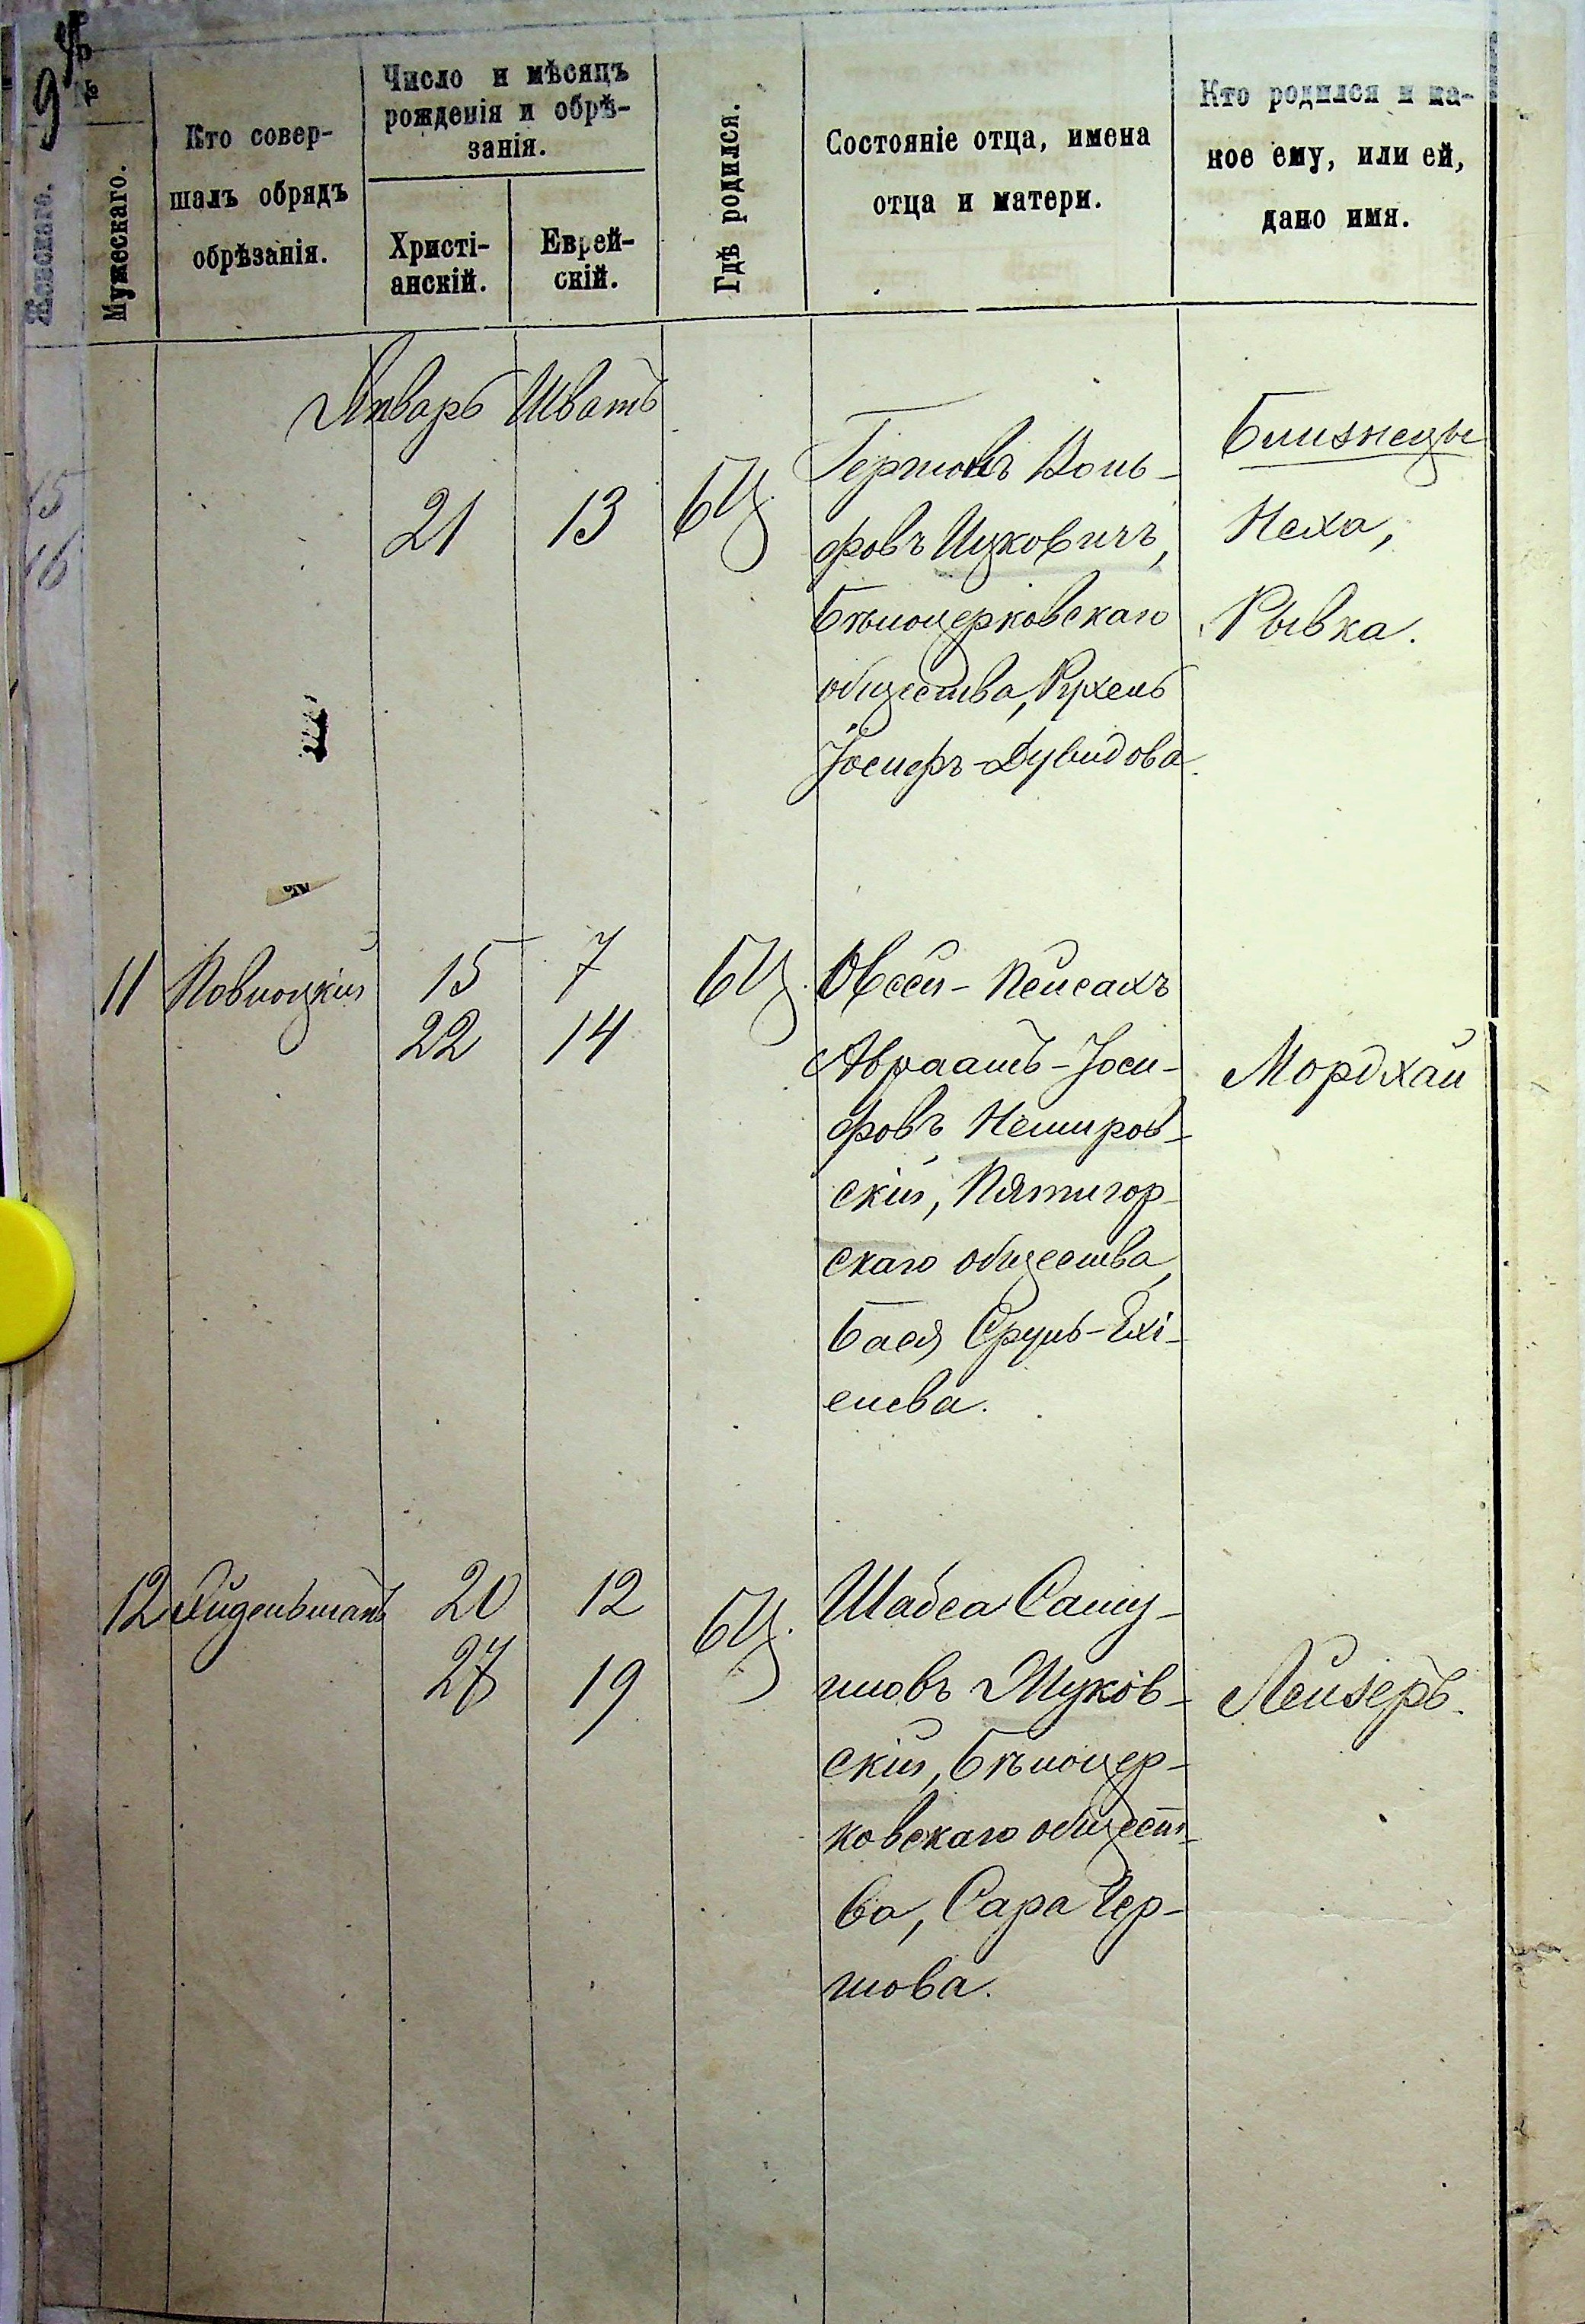 9
№
Женскаго.
Мужескаго.
Кто совер-
шалъ обрядъ
обрѣзанія.
Число и мѣсяцъ
рожденія и обрѣ-
занія.
Христі-
анскій.
Еврей-
скій.
Гдѣ родился.
Состояніе отца, имена
отца и матери.
Кто родился и ка-
кое ему, или ей,
дано имя.
Январь Шватъ
15
16
21 13 БЦ.
Гершовъ Воль-
фовъ Ицковичъ,
Бѣлоцерковскаго
общества, Рухель
Іосифъ-Дувидова.
Близнецы
Неха,
Рывка.
11 Повлоцкій 15 7 БЦ.
22 14
Овсей-Пейсахъ
Авраамъ-Іоси-
фовъ Немиров-
скій, Пятигор-
скаго общества,
Бася Сруль-Ехі-
елева.
Мордхай
12 20 12 БЦ.
27 19
Шабса Саму-
иловъ Жуков-
скій, Бѣлоцер-
ковскаго общест-
ва, Сара Гер-
шова.
Лейзеръ.